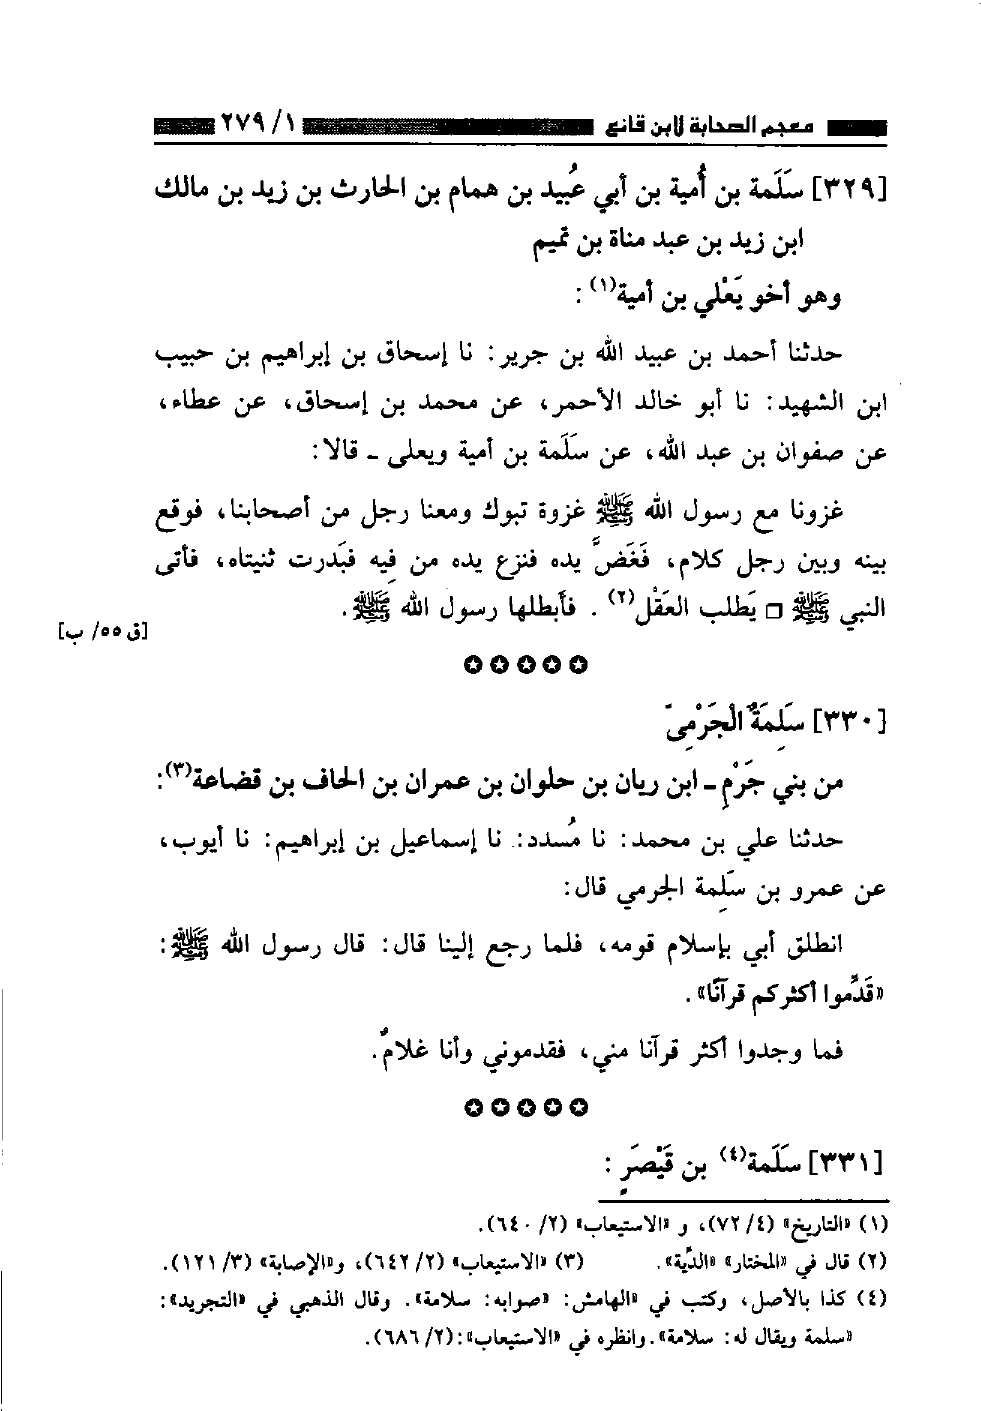 معجم الصحابة لابن قانع ١/ ٢٧٩
[٣٢٩] سَلَمة بن أُمية بن أبي عُبيد بن همام بن الحارث بن زيد بن مالك
ابن زيد بن عبد مناة بن تميم
وهو أخو يَعْلي بن أمية(١) :
حدثنا أحمد بن عبيد الله بن جرير: نا إسحاق بن إبراهيم بن حبيب
ابن الشهيد: نا أبو خالد الأحمر، عن محمد بن إسحاق، عن عطاء،
عن صفوان بن عبد الله، عن سَلَمة بن أمية ويعلى ـ قالا:
غزونا مع رسول الله ﷺ غزوة تبوك ومعنا رجل من أصحابنا، فوقع
بينه وبين رجل كلام، فَغَضَّ يده فنزع يده من فِيه فبَدرت ثنيتاه، فأتى
النبي ﷺ □ يَطلب العَقْل(٢) . فأبطلها رسول الله ﷺ.
[ق ٥٥/ ب]
✪✪✪✪✪
[٣٣٠] سَلِمَةُ الْجَرْمِىّ
من بني جَرْمِ ـ ابن ريان بن حلوان بن عمران بن الحاف بن قضاعة(٣):
حدثنا علي بن محمد: نا مُسدد: نا إسماعيل بن إبراهيم: نا أيوب،
عن عمرو بن سَلِمة الجرمي قال:
انطلق أبي بإسلام قومه، فلما رجع إلينا قال: قال رسول الله ﷺ:
«قَدِّموا أكثركم قرآنًا» .
فما وجدوا أكثر قرآنا مني، فقدموني وأنا غلامٌ.
✪✪✪✪✪
[٣٣١] سَلَمة(٤) بن قَيْصَرٍ :
(١) «التاريخ» (٤/ ٧٢)، و «الاستيعاب» (٢/ ٦٤٠).
(٢) قال في «المختار» «الدِّية». (٣) «الاستيعاب» (٢/ ٦٤٢)، و«الإصابة» (٣/ ١٢١).
(٤) كذا بالأصل، وكتب في «الهامش: «صوابه: سلامة». وقال الذهبي في «التجريد»:
«سلمة ويقال له: سلامة».وانظره في «الاستيعاب»:(٢/ ٦٨٦).